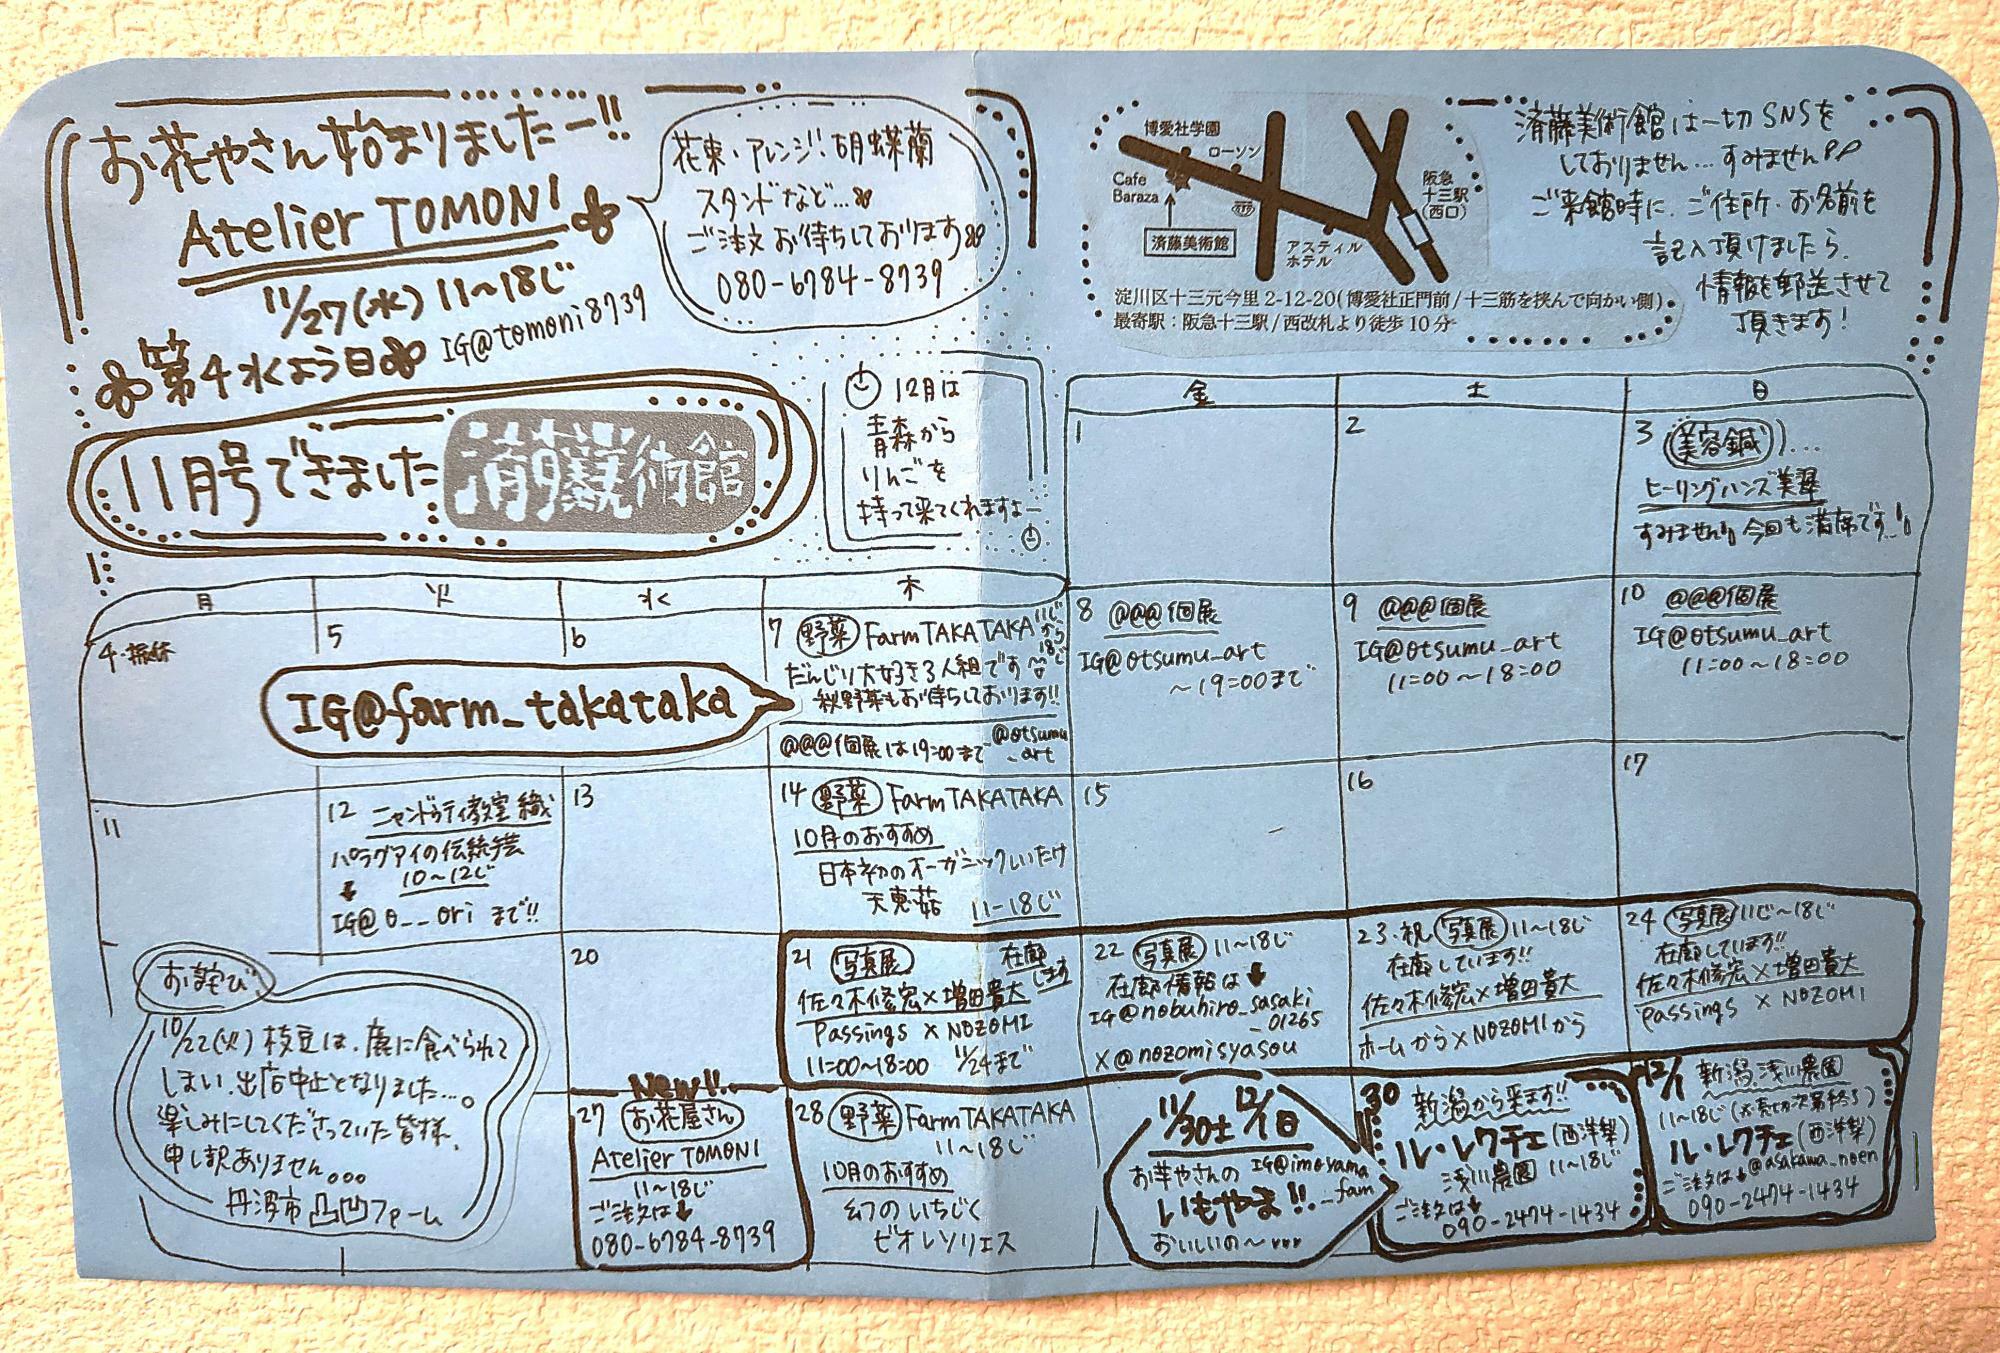 お花やさん始まりましたー!!
Atelier TOMONI
11/27(水) 11〜18じ
第4水よう日
IG@tomoni8739
花束・アレンジ・胡蝶蘭
スタンドなど…
ご注文お待ちしております
080-6784-8739
博愛社学園
ローソン
Cafe
Baraza
済藤美術館
アスティル
ホテル
阪急
十三駅
(西口)
淀川区十三元今里 2-12-20(博愛社正門前/十三筋を挟んで向かい側)
最寄駅:阪急十三駅/西改札より徒歩 10 分
済藤美術館は一切SNSを
しておりません…すみません
ご来館時に、ご住所・お名前を
記入頂けましたら、
情報を郵送させて
頂きます!
11月号できました
済藤美術館
12月は
青森から
りんごを
持って来てくれますよー
金 土 日
1
2
3 美容鍼…
ヒーリングハンズ美翠
すみません 今回も満席です…
月 火 水 木
4・振休
5
6
IG@farm_takataka
7 野菜 Farm TAKATAKA 11じから18じ
だんじり大好き3人組です
秋野菜もお待ちしております!!
@@@個展は19:00まで @otsumu_art
8 @@@個展
IG@otsumu_art
〜19:00まで
9 @@@個展
IG@otsumu_art
11:00〜18:00
10 @@@個展
IG@otsumu_art
11:00〜18:00
11
12 ニャンドゥティ教室 織
パラグアイの伝統手芸
10〜12じ
IG@o__ori まで!!
13
14 野菜 Farm TAKATAKA
10月のおすすめ
日本初のオーガニックしいたけ
天恵菇 11-18じ
15
16
17
お詫び
10/22(火) 枝豆は、鹿に食べられて
しまい、出店中止となりました…。
楽しみにしてくださっていた皆様、
申し訳ありません。。。
丹波市 凸凹ファーム
20
21 写真展 在廊します
佐々木修宏×増田貴大
Passings × NOZOMI
11:00〜18:00 11/24まで
22 写真展 11〜18じ
在廊情報は
IG@nobuhiro_sasaki
_01265
X@nozomisyasou
23・祝 写真展 11〜18じ
在廊しています!!
佐々木修宏×増田貴大
ホームから×NOZOMIから
24 写真展 11じ〜18じ
在廊しています!!
佐々木修宏×増田貴大
Passings × NOZOMI
New!!
27 お花屋さん
Atelier TOMONI
11〜18じ
ご注文は
080-6784-8739
28 野菜 Farm TAKATAKA
11〜18じ
10月のおすすめ
幻のいちじく
ビオレソリエス
11/30土 12/1日
お芋やさんの IG@imoyama
_fam
いもやま!!
おいしいの〜
30 新潟から来ます!!
ル・レクチェ(西洋梨)
浅川農園 11〜18じ
ご注文は
090-2474-1434
12/1 新潟 浅川農園
11〜18じ(※売切次第終了)
ル・レクチェ(西洋梨)
ご注文は @asakawa_noen
090-2474-1434